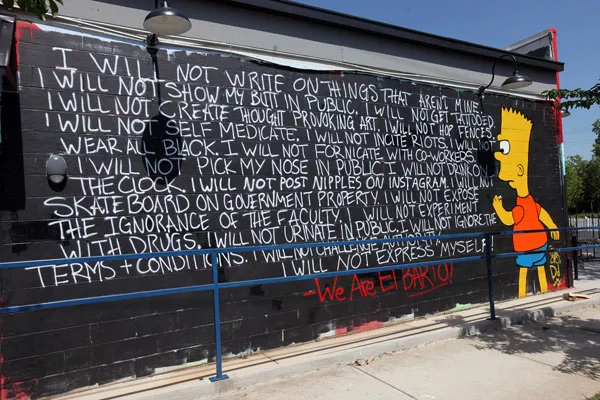 I WILL NOT WRITE ON THINGS THAT ARENT MINE.
I WILL NOT SHOW MY BUTT IN PUBLIC. I WILL NOT GET TATTOOED.
I WILL NOT CREATE THOUGHT PROVOKING ART. I WILL NOT HOP FENCES.
I WILL NOT SELF MEDICATE. I WILL NOT INCITE RIOTS. I WILL NOT
WEAR ALL BLACK. I WILL NOT FORNICATE WITH CO-WORKERS.
I WILL NOT PICK MY NOSE IN PUBLIC. I WILL NOT DRINK ON
THE CLOCK. I WILL NOT POST NIPPLES ON INSTAGRAM. I WILL NOT
SKATEBOARD ON GOVERNMENT PROPERTY. I WILL NOT EXPOSE
THE IGNORANCE OF THE FACULTY. I WILL NOT EXPERIMENT
WITH DRUGS. I WILL NOT URINATE IN PUBLIC. I WILL NOT IGNORE
TERMS + CONDITIONS. I WILL NOT CHALLENGE AUTHORITY.
I WILL NOT EXPRESS MYSELF.
-We Are El BARTO!